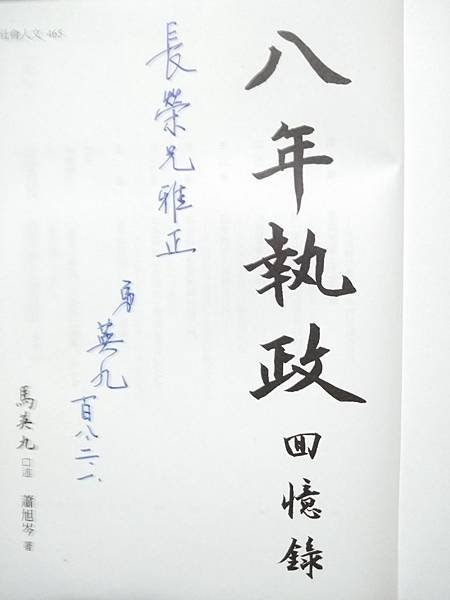 八年執政
回憶錄
長榮兄雅正
馬英九
百八、二、一、
馬英九 口述 蕭旭岑 著
社會人文 465